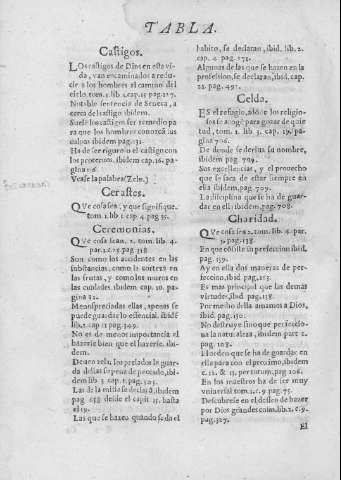 TABLA.
Castigos.
LOs castigos de Dios en esta vi-
da, van encaminados a redu-
cir a los hombres al camino del
cielo. tom. 1. lib. cap. 15 pag. 117.
Notable sentencia de Seneca, a
cerca del castigo ibidem.
Suele los castigos ser remedio pa
ra que los hombres conozcã sus
culpas ibidem pag. 131.
Ha de ser riguroso el castigo en
los proteruos. ibidem cap. 16.
Vease la palabra (Zelo.)
Cerastes.
QVe cosa sea, y que signifique.
tom. 1. lib. 1. cap. 4. pag. 35.
Ceremonias.
QVe cosa sean. 2. tom. lib. 4.
pag. 158
Son como los accidentes en las
substancias, como la corteza en
las frutas, y como los muros en
las ciudades. ibidem. cap. 20. pa-
gina 12.
Menospreciadas ellas, apenas se
puede guardar lo essencial. ibid.
lib. 2. cap. 12 pag. 309.
No es de menos importancia el
hazerse bien que el hazerse. ibi-
dem.
Deuen zelar los prelados la guar-
da dellas so pena de pecado, ibi-
dem lib. 3. cap. 1. pag. 505.
Las de la missa se declarã, ibidem
pag. 458 desde el capit. 15. hasta
el 19.
Las que se hazen quando se da el
habito, se declaran, ibid. lib. 2.
cap. 4. pag. 171.
Algunas de las que se hazen en la
profession, se declaran, ibid. cap.
22. pag. 491.
Celda.
ES el refugio, adonde los religio-
sos se acogẽ para gozar de quie
tud, tom. 1. lib. 3. cap. 19. pa-
gina 706.
De donde se deriua su nombre,
ibidem pag. 709.
Sus excellencias, y el prouecho
que se saca de estar siempre en
ella ibidem, pag. 709.
La disciplina que se ha de guar-
dar en ella ibidem, pag. 708.
Charidad.
QVe cosa sea 2. tom. lib. 4. par.
3. pag. 138.
En que cõsiste su perfeccion ibid.
pag. 139.
Ay en ella dos maneras de per-
feccion, ibid pag. 213.
Es mas principal que las demas
virtudes, ibid pag. 138.
Por medio della amamos a Dios,
ibid. pag. 150.
No destruye sino que perfectio-
na la naturaleza, ibidem part. 2.
pag. 103.
El orden que se ha de guardar en
ella para con el proximo, ibidem
c. 12. & 13. per totum, pag 106.
En los maestros ha de ser muy
vniuersal tom. 2. c. 9 pag. 75.
Descubrese en el desseo de hazer
por Dios grandes cosas, lib. 2. c. 9.
pag. 327.
El